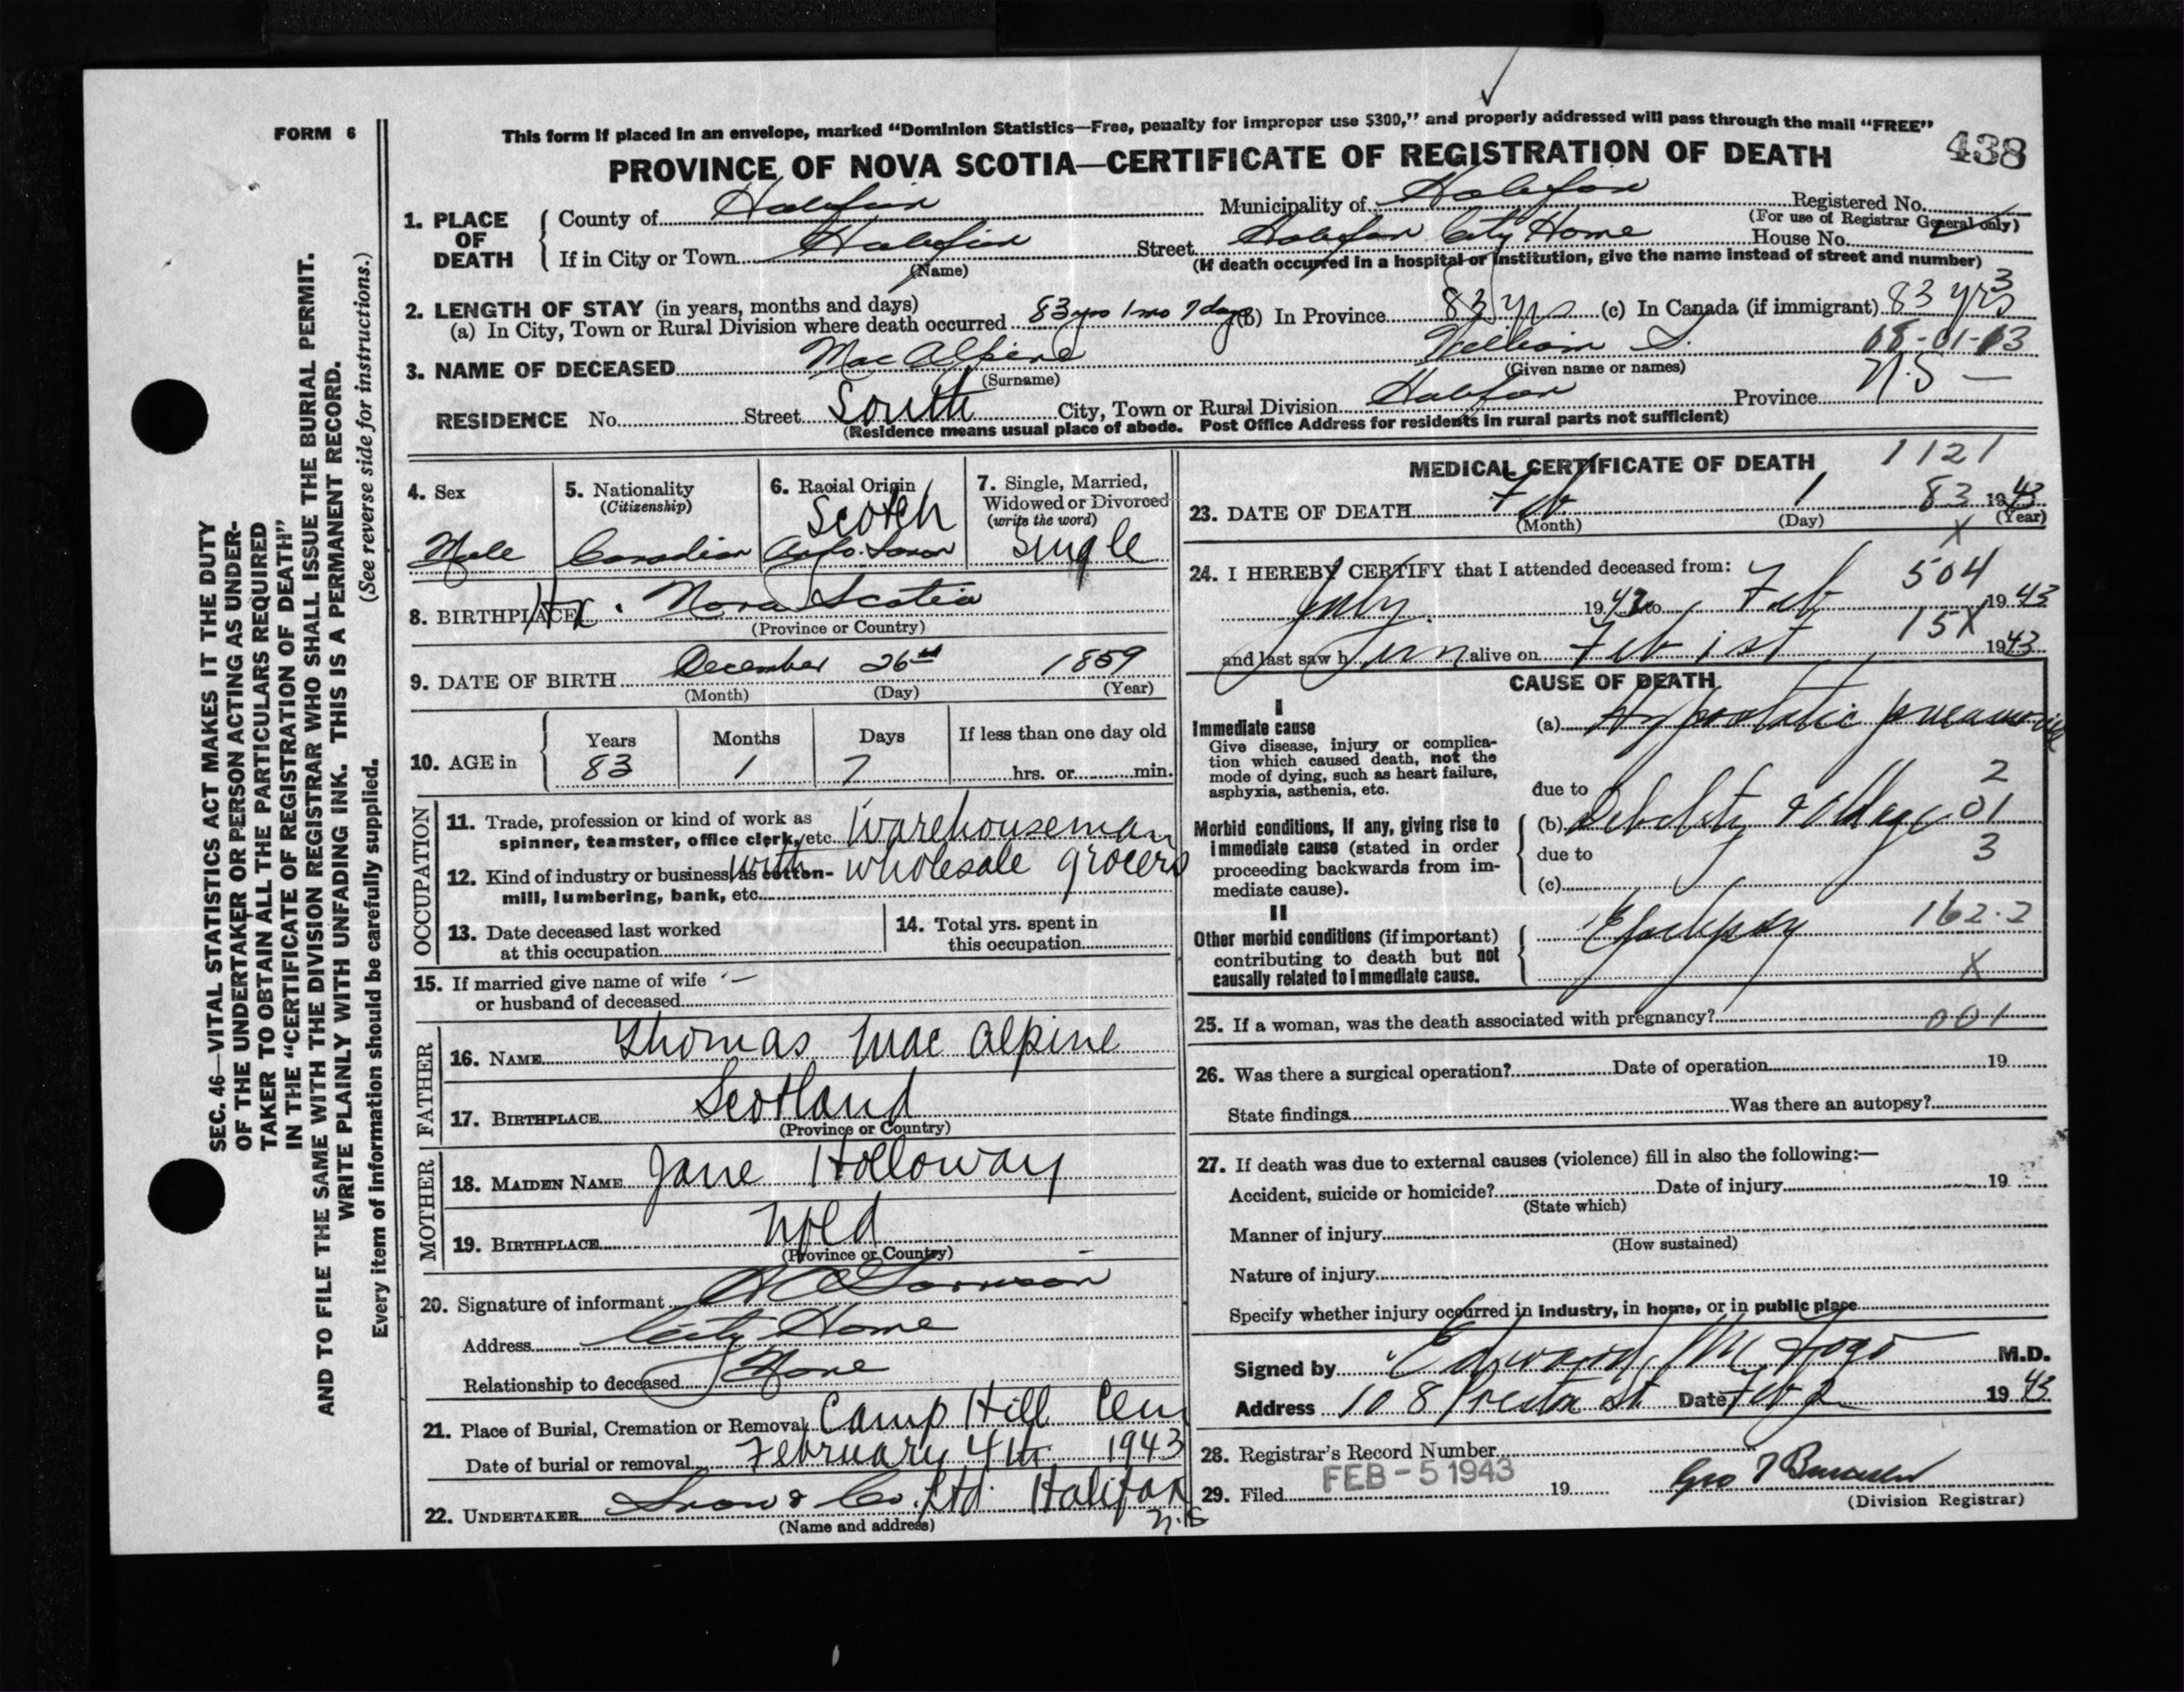 FORM 6
This form if placed in an envelope, marked "Dominion Statistics—Free, penalty for improper use $300," and properly addressed will pass through the mail "FREE"
PROVINCE OF NOVA SCOTIA—CERTIFICATE OF REGISTRATION OF DEATH
438
1. PLACE OF DEATH
County of Halifax Municipality of Halifax Registered No.
(For use of Registrar General only)
If in City or Town Halifax Street Halifax City Home House No.
(Name) (If death occurred in a hospital or institution, give the name instead of street and number)
2. LENGTH OF STAY (in years, months and days)
(a) In City, Town or Rural Division where death occurred 83 yrs 1 mo 7 days (b) In Province 83 yrs (c) In Canada (if immigrant) 83 yrs
3
3. NAME OF DECEASED Mac Alpine William S. 08-01-03
(Surname) (Given name or names)
RESIDENCE No. Street South City, Town or Rural Division Halifax Province N.S —
(Residence means usual place of abode. Post Office Address for residents in rural parts not sufficient)
4. Sex
Male
5. Nationality
(Citizenship)
Canadian
6. Racial Origin
Scotch
Anglo. Saxon
7. Single, Married,
Widowed or Divorced
(write the word)
Single
8. BIRTHPLACE Hx. Nova Scotia
(Province or Country)
9. DATE OF BIRTH December 26th 1859
(Month) (Day) (Year)
10. AGE in
Years Months Days If less than one day old
83 1 7 hrs. or min.
OCCUPATION
11. Trade, profession or kind of work as
spinner, teamster, office clerk, etc. Warehouseman
12. Kind of industry or business, as cotton- with wholesale grocers
mill, lumbering, bank, etc.
13. Date deceased last worked
at this occupation
14. Total yrs. spent in
this occupation
15. If married give name of wife —
or husband of deceased
FATHER
16. NAME Thomas Mac Alpine
17. BIRTHPLACE Scotland
(Province or Country)
MOTHER
18. MAIDEN NAME Jane Holloway
19. BIRTHPLACE Nfld
(Province or Country)
20. Signature of informant
Address City Home
Relationship to deceased None
21. Place of Burial, Cremation or Removal Camp Hill Cem
Date of burial or removal February 4th 1943
22. UNDERTAKER Snow & Co. Ltd. Halifax
N.S
(Name and address)
MEDICAL CERTIFICATE OF DEATH 1121
23. DATE OF DEATH Feb 1 83 1943
(Month) (Day) (Year)
X
24. I HEREBY CERTIFY that I attended deceased from: 504
July 1942 to Feb 1943
15X
and last saw him alive on Feb 1st 1943
CAUSE OF DEATH
I
Immediate cause
Give disease, injury or complica-
tion which caused death, not the
mode of dying, such as heart failure,
asphyxia, asthenia, etc.
(a) Hypostatic pneumonia
due to 2
Morbid conditions, if any, giving rise to
immediate cause (stated in order
proceeding backwards from im-
mediate cause).
(b) Debility & Old age 01
due to 3
(c)
II
Other morbid conditions (if important)
contributing to death but not
causally related to immediate cause.
Epilepsy 162.2
X
25. If a woman, was the death associated with pregnancy? 001
26. Was there a surgical operation? Date of operation 19
State findings Was there an autopsy?
27. If death was due to external causes (violence) fill in also the following:—
Accident, suicide or homicide? Date of injury 19
(State which)
Manner of injury
(How sustained)
Nature of injury
Specify whether injury occurred in industry, in home, or in public place
Signed by Edward M. Fogo M.D.
Address 108 Preston St Date Feb 2 1943
28. Registrar's Record Number
29. Filed FEB - 5 1943 19
Geo
(Division Registrar)
SEC. 46—VITAL STATISTICS ACT MAKES IT THE DUTY
OF THE UNDERTAKER OR PERSON ACTING AS UNDER-
TAKER TO OBTAIN ALL THE PARTICULARS REQUIRED
IN THE "CERTIFICATE OF REGISTRATION OF DEATH"
AND TO FILE THE SAME WITH THE DIVISION REGISTRAR WHO SHALL ISSUE THE BURIAL PERMIT.
WRITE PLAINLY WITH UNFADING INK. THIS IS A PERMANENT RECORD.
(See reverse side for instructions.)
Every item of information should be carefully supplied.